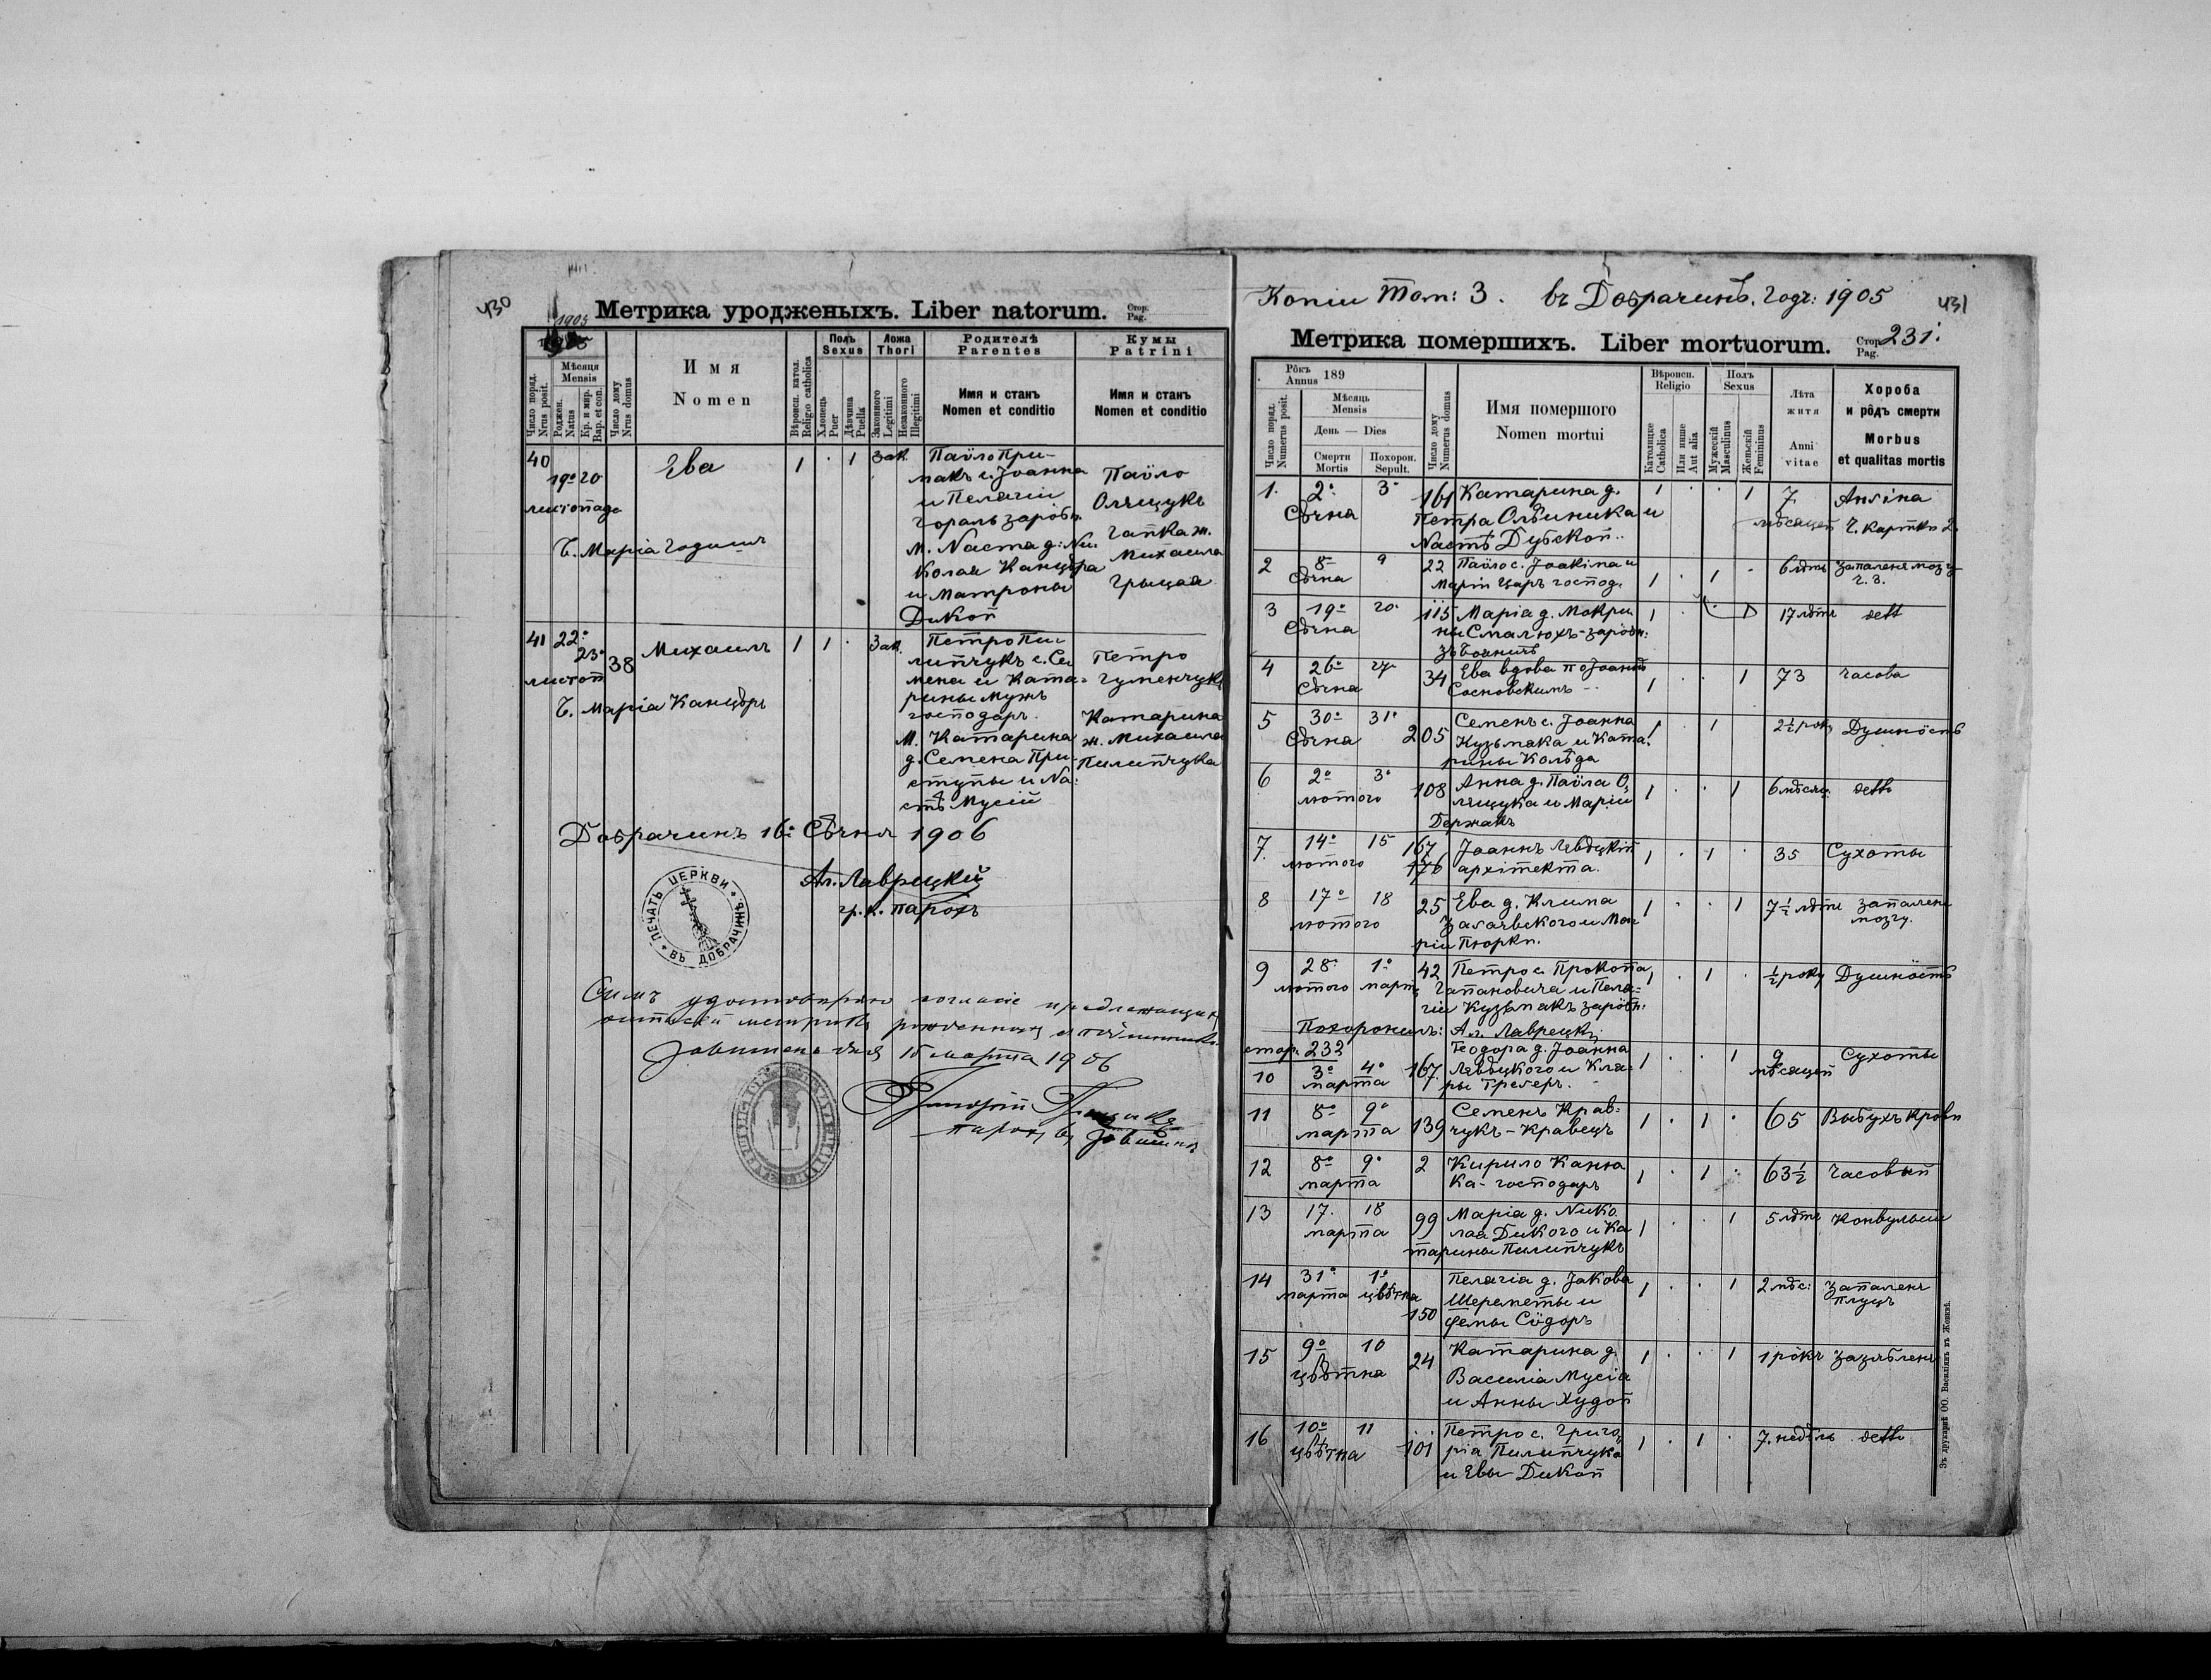 430
Метрика уродженыхъ. Liber natorum.
Стор.
Pag.
1905
Мѣсяця
Mensis
Число поряд.
Nrus posit.
Роджен.
Natus
Кр. и мѵр.
Bap. et con.
Число дому
Nrus domus
Имя
Nomen
Вѣроисп. катол.
Religio catholica
Полъ
Sexus
Хлопець
Puer
Дѣвчина
Puella
Ложа
Thori
Законного
Legitimi
Незаконного
Illegitimi
Родителѣ
Parentes
Имя и станъ
Nomen et conditio
Кумы
Patrini
Имя и станъ
Nomen et conditio
40
19º 20
листопада
Ева
1 · 1 Зак.
Паôло При-
макъ с. Іоанна
и Пелагіи
М. Наста д: Ни.
колая Канцѣра
и Матроны
Дикой
Паôло
Олящукъ
Гапка ж.
Михаила
Грыцая
Б. Марія
41 22º
23º
листоп
38
Михаилъ
1 1 · Зак.
Петро Пи-
липчукъ с. Се
мена и Ката-
рины мужъ
господарь.
М. Катарина
д. Семена При-
ступы и На:
стѣ Мусій
Петро
Гуменчукъ
Катарина
ж. Михаила
Пилипчука
Б. Марія Канцѣръ
Добрачинъ 16º Сѣчня 1906
Ал. Лаврецкій
гр. к. парохъ
ПЕЧАТЬ ЦЕРКВИ ВЪ ДОБРАЧИНѢ
Симъ удостовѣряю согласіе предлежащихъ
дня 15 марта 1906
парохъ въ
Копіи Том: 3. въ Добрачинѣ. Годъ: 1905
431
Метрика помершихъ. Liber mortuorum.
Стор.
Pag.
231.
Рôкъ
Annus 189
Число поряд.
Numerus posit.
Мѣсяць
Mensis
День — Dies
Смерти
Mortis
Похорон.
Sepult.
Число дому
Numerus domus
Имя помершого
Nomen mortui
Вѣроисп.
Religio
Католицке
Catholica
Или инше
Aut alia
Полъ
Sexus
Мужескій
Masculinus
Женьскій
Femininus
Лѣта
житя
Anni
vitae
Хороба
и рôдъ смерти
Morbus
et qualitas mortis
1. 2º 3º
Сѣчня
161 Катарина д.
Петра Олѣйника и
Настѣ Дубской
1 · · 1 7
мѣсяцей
Ангіна
ч. картки 2.
2 8º 9
Сѣчня
22 Паôло с. Іоакіма и
Маріи Царь господ.
1 · 1 · 6 лѣтъ запаленя мозгу
ч. 3.
3 19º 20.
Сѣчня
115 Марія д. Мокри
ны Смалюхъ-зарôбн:
1 · · 1 17 лѣтъ dett
4 26º 27.
Сѣчня
34 Ева вдова по Іоаннѣ
Сосновскимъ
1 · · 1 73 часова
5 30º 31º
Сѣчня
205
Семенъ с. Іоанна
Кузьмака и Ката.
рины Колѣда
1 · 1 2½ року Душнôсть
6 2º 3º
лютого
108 Анна д. Паôла О
лящука и Маріи
Держакъ
1 · · 1 6 мѣсяц. detto
7. 14º 15
лютого
167
176
Іоаннъ Лявдцкій
архітекта.
1 · 1 · 35 Сухоты
8 17º 18
лютого
25 Ева д. Клима
Загаевского и Ма
ріи Пюрки.
1 · · 1 7½ лѣтъ запалене
мозгу.
9 28º 1º
лютого марта
42 Петро с. Прокопа
Гапановича и Пела-
гіи Кузьмакъ зарôбн:
1 · 1 · ½ року Душнôсть
Похоронилъ: Ал. Лаврецкій
стор. 232
10 3º 4º
марта
167.
Теодора д. Іоанна
Лявдцкого и Кла-
ры Трегеръ.
1 · · 1 9
мѣсяцей
Сухоты
11 8º 9º
марта
139
Семенъ Крав-
чукъ - Кравець
1 · 1 · 65 Выбухъ крови
12 8º 9º
марта
2 Кирило Каню
ка - господарь
1 · 1 · 63½ Часовый
13 17. 18
марта
99 Марія д. Нико
лая Дикого и Ка
тарины Пилипчукъ
1 · · 1 5 лѣтъ Конвульсіи
14 31º 1º
марта цвѣтня
150
Пелагія д. Іакова
Шереметы и
Фемы Сôдоръ
1 · · 1 2 мѣс: Запалене
плуць
15 9º 10
цвѣтня
24
Катарина д.
Василія Мусія
и Анны Худой
1 · · 1 1 рôкъ зазябленя
16 10º 11
цвѣтня
101
Петро с. Григо
рія Пилипчука
и Евы Дикой
1 · 1 · 7. недѣль detto
Зъ друкарнѣ ОО. Василіянъ въ Жовквѣ.